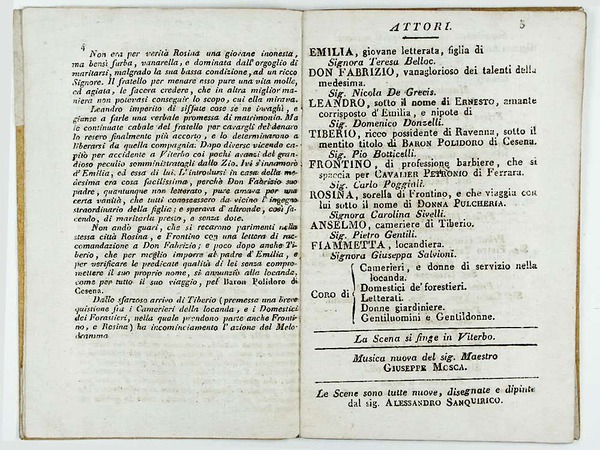 4
Non era per verità Rosina una giovane inonesta,
ma bensì furba, vanarella, e dominata dall'orgoglio di
maritarsi, malgrado la sua bassa condizione, ad un ricco
Signore. Il fratello per menare esso pure una vita molle,
ed agiata, le faceva credere, che in altra miglior ma-
niera non potevasi conseguir lo scopo, cui ella mirava.
Leandro imperito di siffatte cose sè ne invaghì, e
giunse a farle una verbale promessa di matrimonio. Ma
le continuate cabale del fratello per cavargli del denaro
lo resero finalmente più accorto, e lo determinarono a
liberarsi da quella compagnia. Dopo diverse vicende ca-
pitò per accidente a Viterbo coi pochi avanzi del gran-
dioso peculio somministratogli dallo Zio. Ivi s'innamorò
d'Emilia, ed essa di lui. L'introdursi in casa della me-
desima era cosa facilissima, perchè Don Fabrizio suo
padre, quantunque non letterato, pure aveva per una
certa vanità, che tutti conoscessero da vicino l'ingegno
straordinario della figlia; e sperava d'altronde, così fa-
cendo, di maritarla presto, e senza dote.
Non andò guari, che si recarono parimenti nella
stessa città Rosina, e Frontino con una lettera di rac-
comandazione a Don Fabrizio; e poco dopo anche Ti-
berio, che per meglio imporre al padre d'Emilia, e per
verificare le predicate qualità di lei senza compro-
mettere il suo proprio nome, si annunziò alla locanda,
come per tutto il suo viaggio, pel Baron Polidoro di
Cesena.
Dallo sfarzoso arrivo di Tiberio (premessa una breve
quistione fra i Camerieri della locanda, e i Domestici
dei Forastieri, nella quale prendono parte anche Fronti-
no, e Rosina) ha incominciamento l'azione del Melo-
dramma
5
ATTORI.
EMILIA, giovane letterata, figlia di
Signora Teresa Belloc.
DON FABRIZIO, vanaglorioso dei talenti della
medesima.
Sig. Nicola De Grecis.
LEANDRO, sotto il nome di ERNESTO, amante
corrisposto d'Emilia, e nipote di
Sig. Domenico Donzelli.
TIBERIO, ricco possidente di Ravenna, sotto il
mentito titolo di BARON POLIDORO di Cesena.
Sig. Pio Botticelli.
FRONTINO, di professione barbiere, che si
spaccia per CAVALIER PETRONIO di Ferrara.
Sig. Carlo Poggiali.
ROSINA, sorella di Frontino, e che viaggia con
lui sotto il nome di DONNA PULCHERIA.
Signora Carolina Sivelli.
ANSELMO, cameriere di Tiberio.
Sig. Pietro Gentili.
FIAMMETTA, locandiera.
Signora Giuseppa Salvioni.
CORO di
Camerieri, e donne di servizio nella
locanda.
Domestici de' forestieri.
Letterati.
Donne giardiniere.
Gentiluomini e Gentildonne.
La Scena si finge in Viterbo.
Musica nuova del sig. Maestro
GIUSEPPE MOSCA.
Le Scene sono tutte nuove, disegnate e dipinte
dal sig. ALESSANDRO SANQUIRICO.